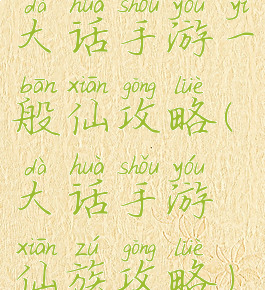 dà huà shǒu yóu yī
大话手游一
bān xiān gōng lüè
般仙攻略(
dà huà shǒu yóu
大话手游
xiān zú gōng lüè
仙族攻略)